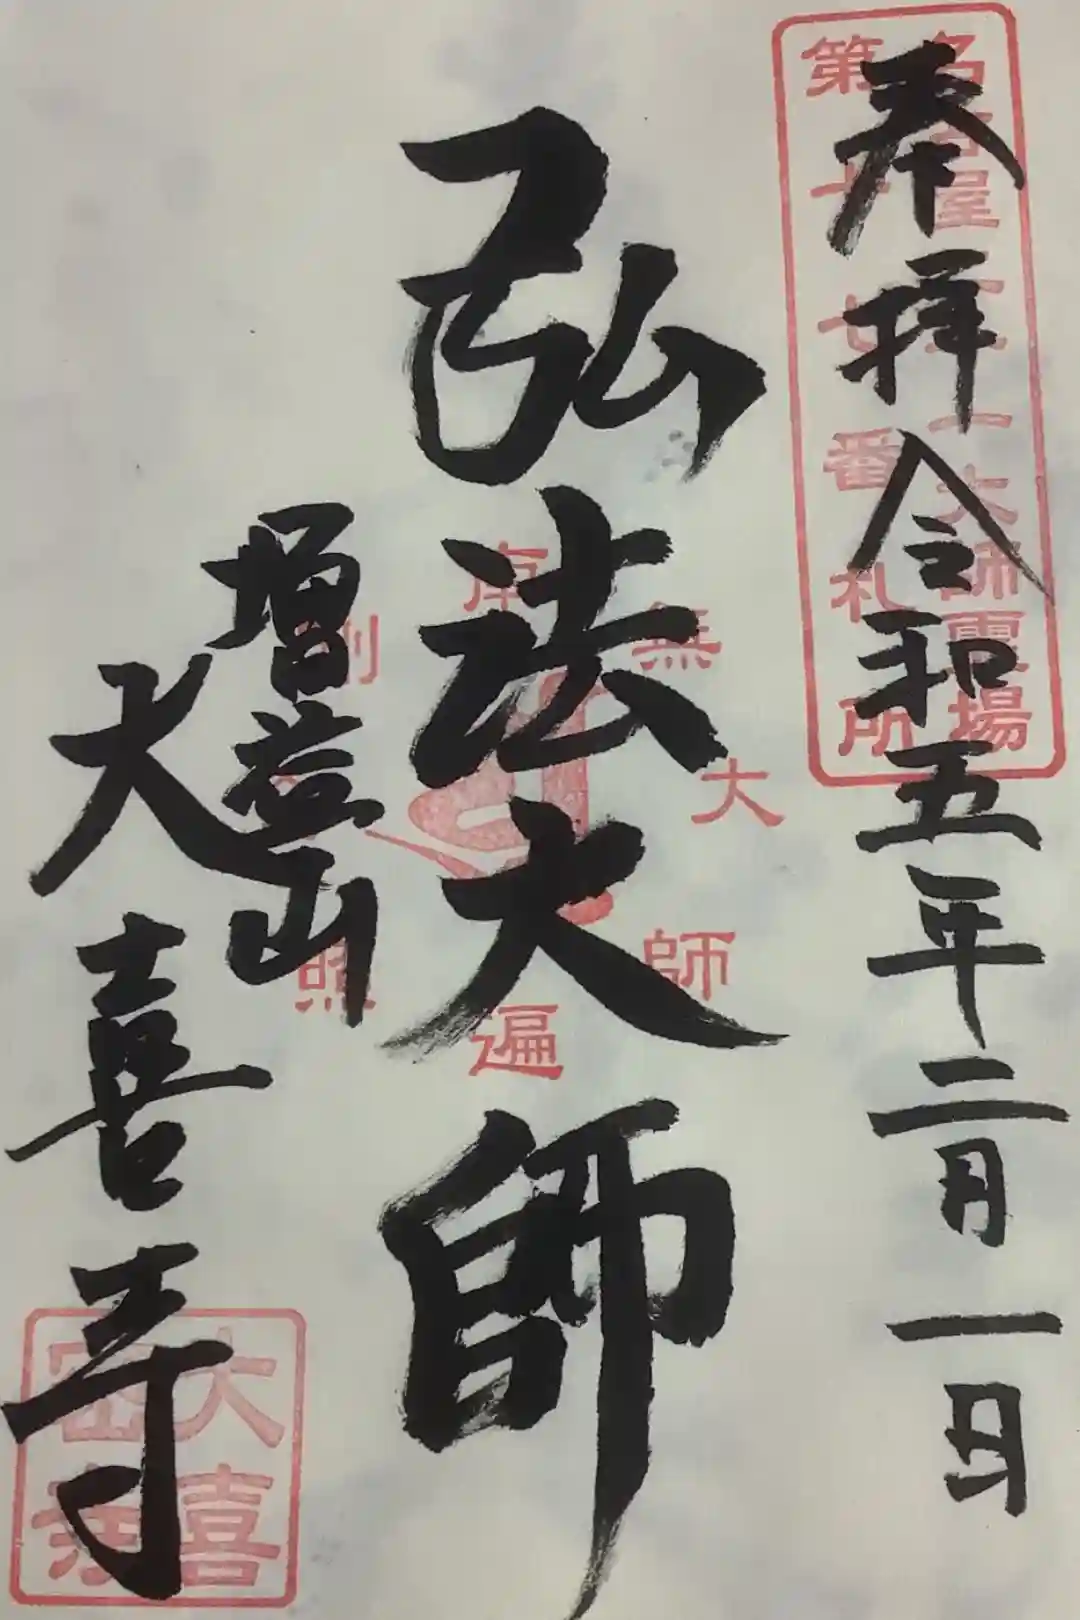 奉拝 令和五年二月一日
名古屋二十一大師霊場
番札所
弘法大師
南無大師遍照
増益山
大喜寺
大喜